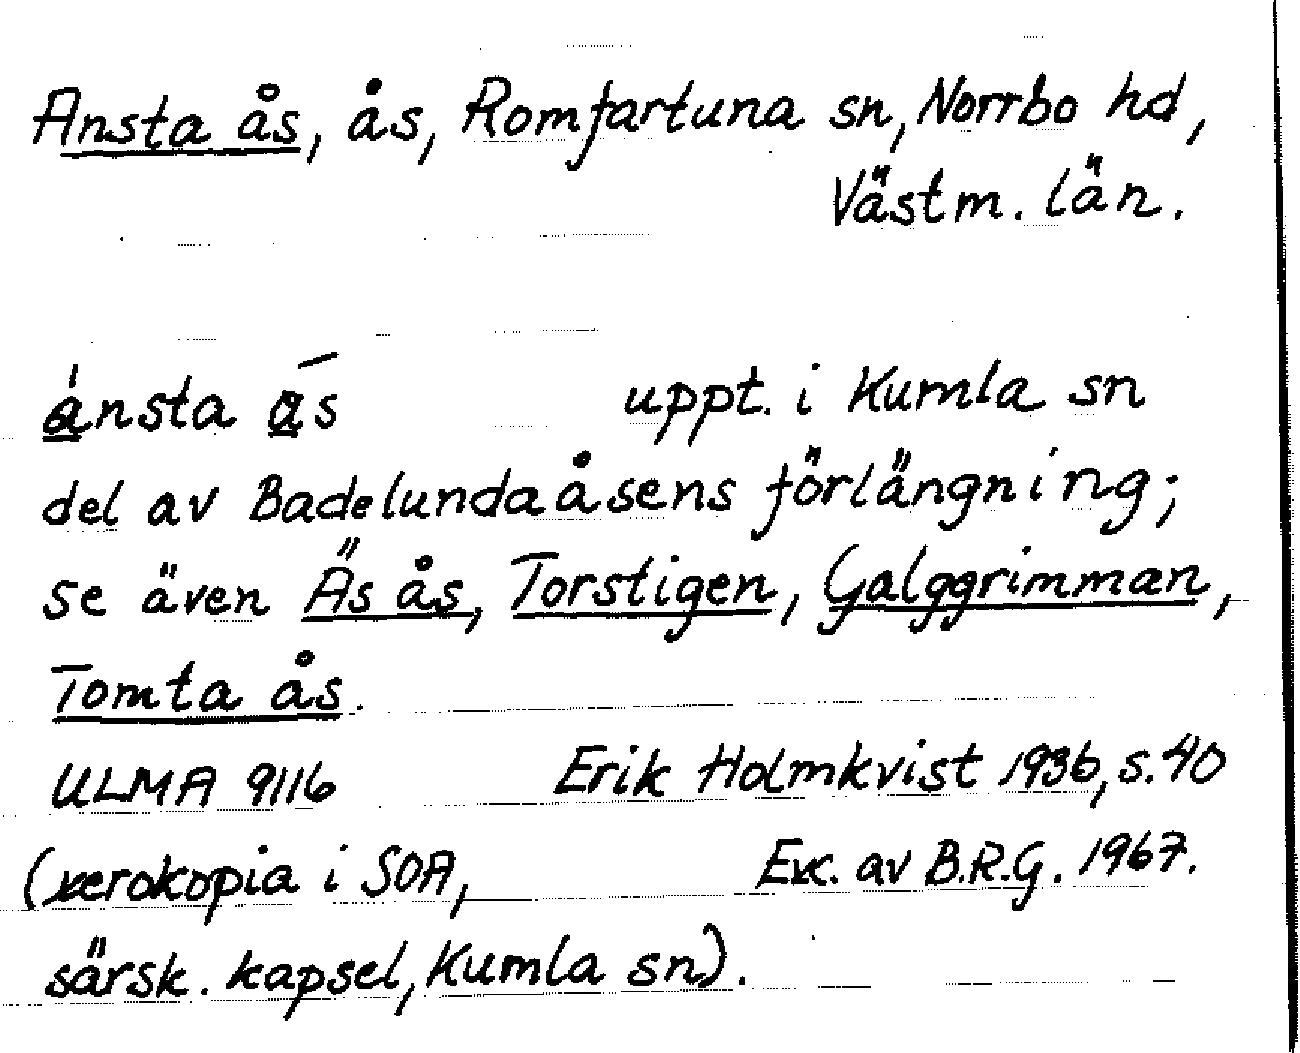 Ansta ås, ås, Romfartuna sn, Norrbo hd,
Västm. län.
ánsta ā̱s uppt. i Kumla sn
del av Badelundaåsens förlängning;
se även Äs ås, Torstigen, Galggrimman,
Tomta ås.
ULMA 9116 Erik Holmkvist 1936, s. 40
(xerokopia i SOA, Exc. av B.R.G. 1967.
särsk. kapsel, Kumla sn).